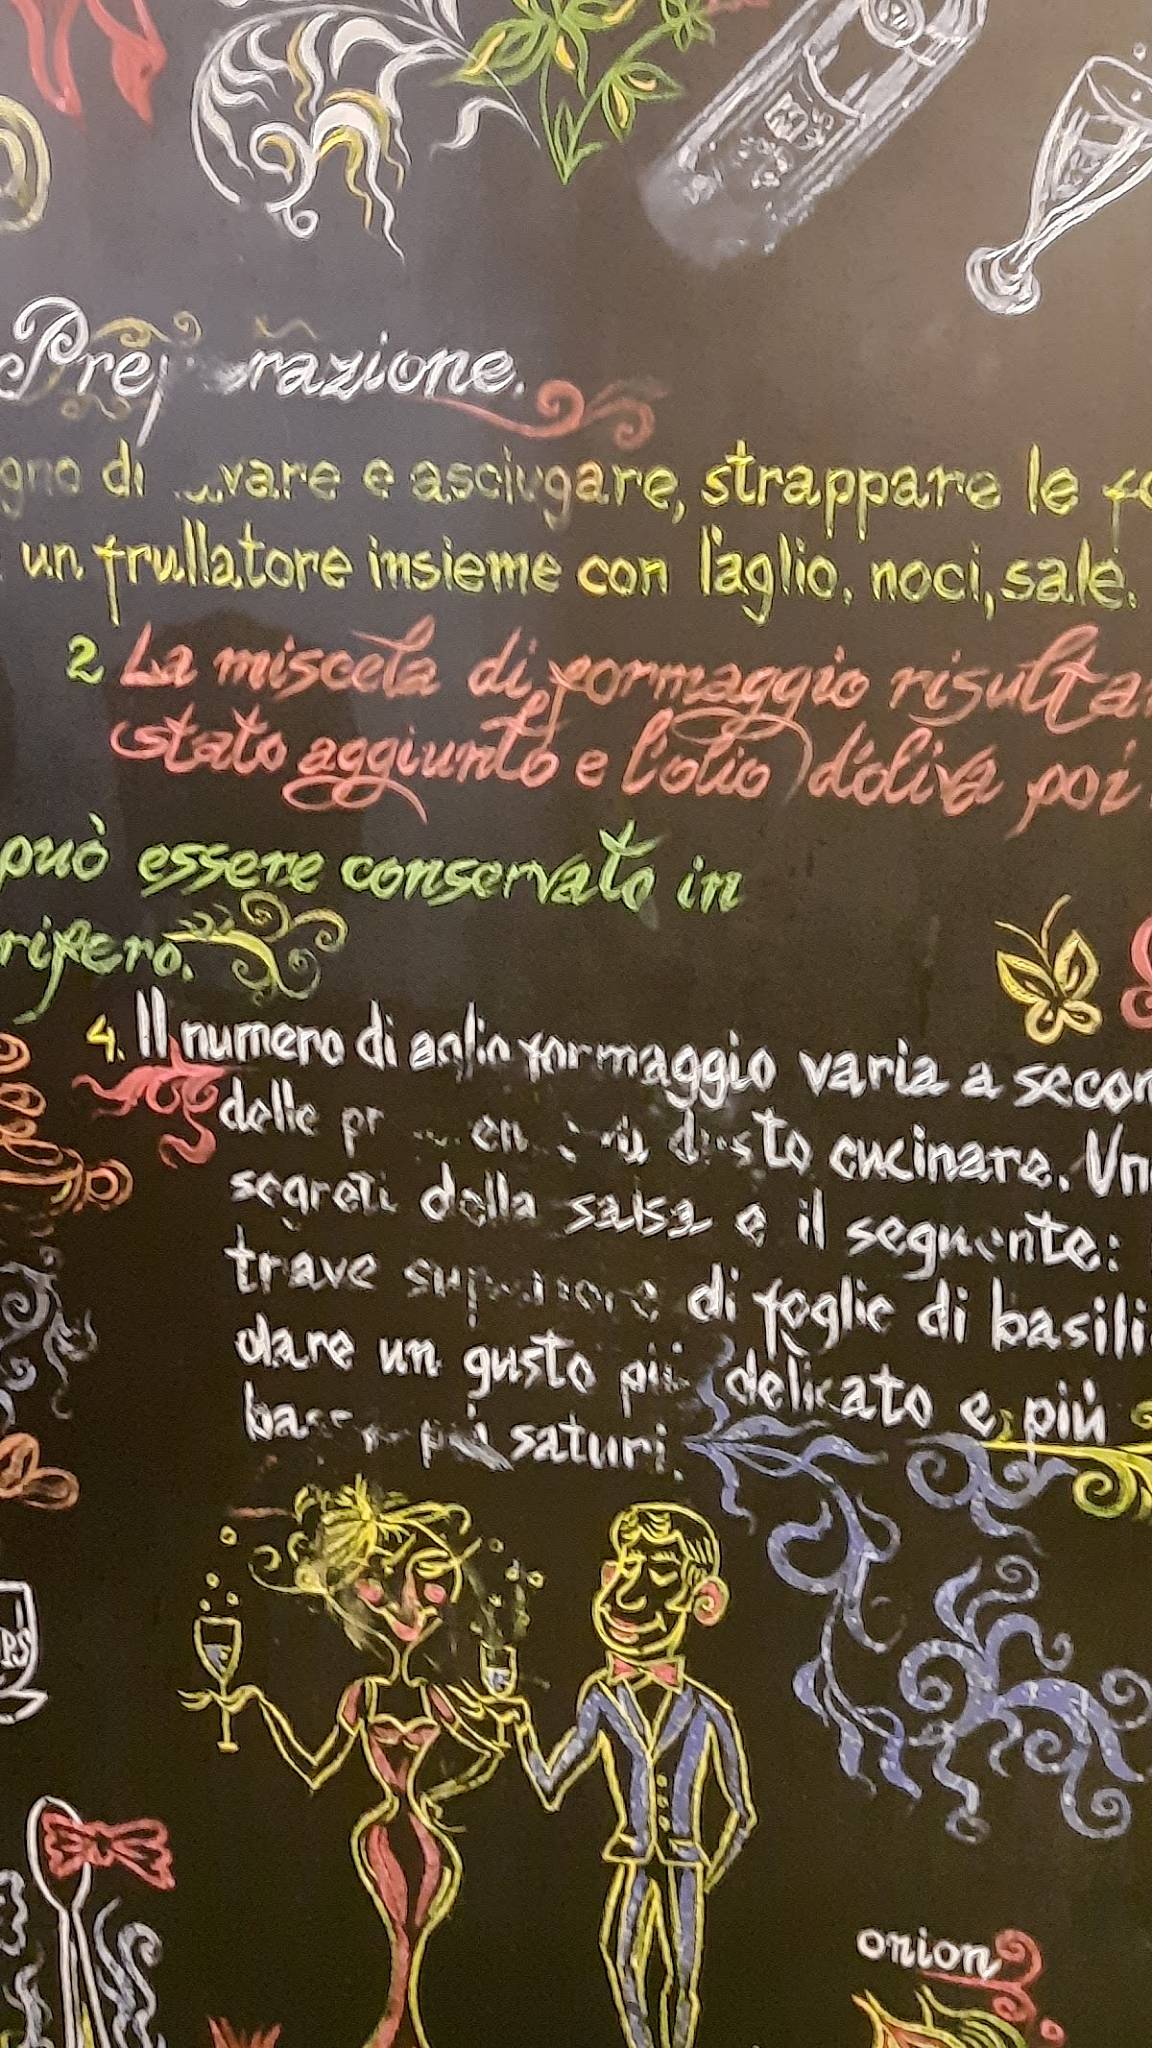 Preparazione.
di vare e asciugare, strappare le
un frullatore insieme con l'aglio, noci, sale.
2 La miscela di formaggio
stato aggiunto e l'olio d'oliva poi
può essere conservato in
rifero.
4. Il numero di aglio formaggio varia a secon
delle cucinare. Un
segreti della salsa e il seguente:
trave di foglie di basili
dare un gusto più delicato e più
più saturi.
onion